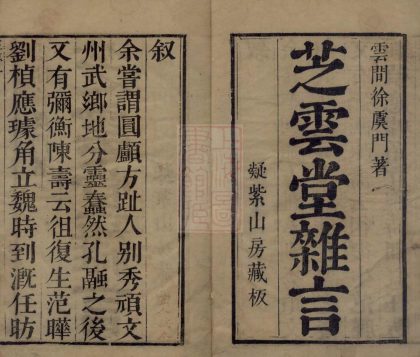 雲間徐虞門著
芝雲堂雜言
凝紫山房藏板
叙
余嘗謂圓顱方趾人别秀頑文
州武鄉地分靈蠢然孔融之後
又有彌衡陳壽云徂復生范曄
劉楨應璩角立魏時到溉任昉